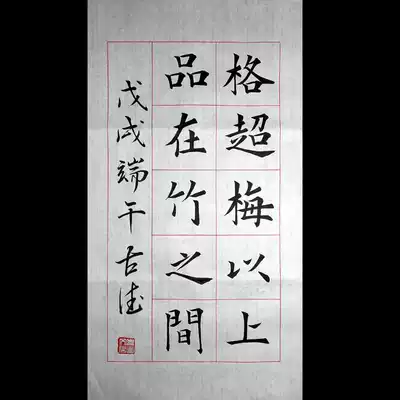 格超梅以上
品在竹之間
戊戌端午古法